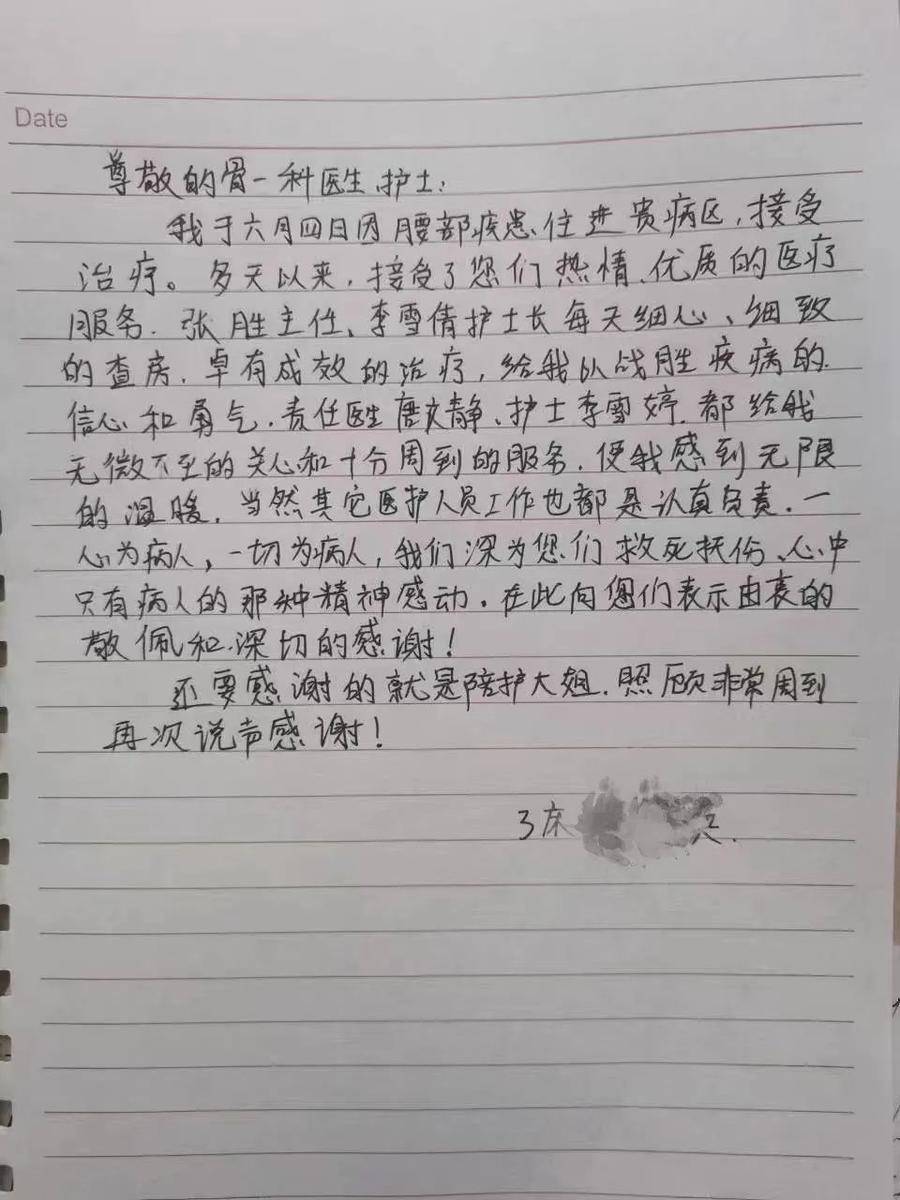 Date
尊敬的骨一科医生、护士:
我于六月四日因腰部疾患住进贵病区,接受
治疗。多天以来,接受了您们热情、优质的医疗
服务.张胜主任、李雪倩护士长每天细心、细致
的查房.卓有成效的治疗,给我以战胜疾病的
信心和勇气.责任医生唐文静、护士李雪婷.都给我
无微不至的关心和十分周到的服务.使我感到无限
的温暖.当然其它医护人员工作也都是认真负责.一
心为病人,一切为病人,我们深为您们救死扶伤、心中
只有病人的那种精神感动.在此向您们表示由衷的
敬佩和深切的感谢!
还要感谢的就是陪护大姐.照顾非常周到
再次说声感谢!
3床